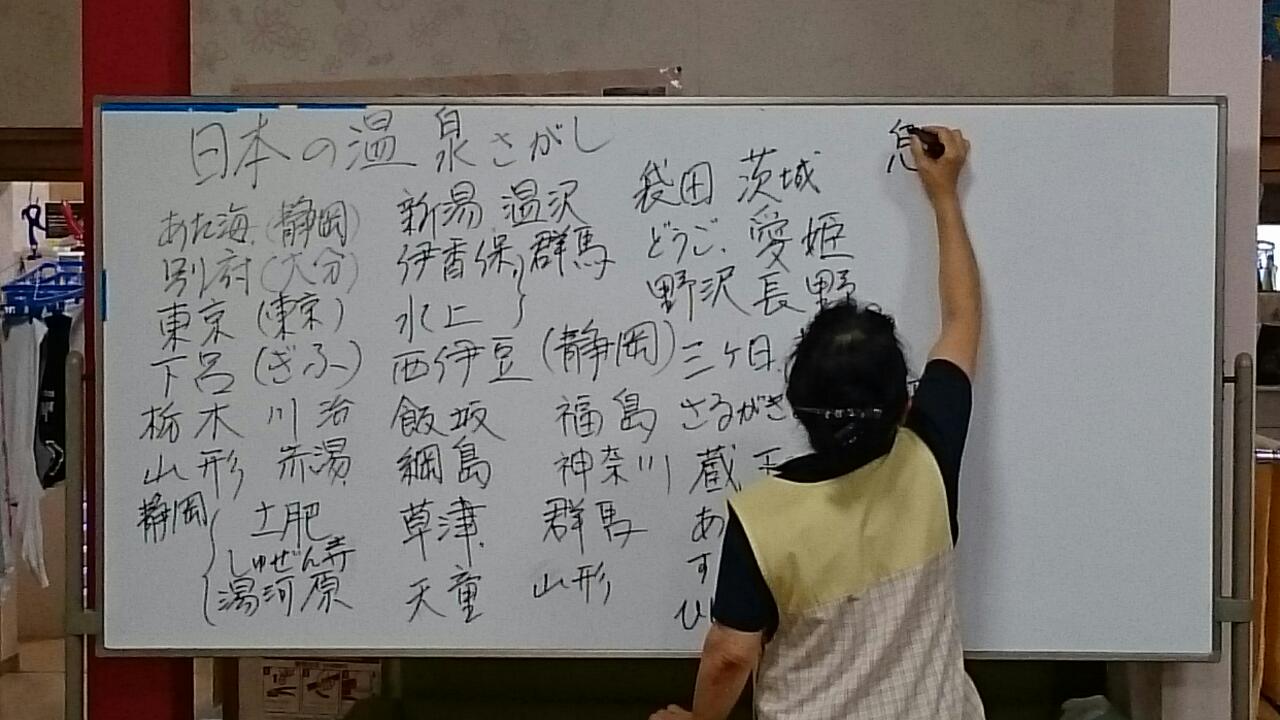 日本の温泉さがし
あた海 (静岡)
別府 (大分)
東京 (東京)
下呂 (ぎふ)
栃木 川治
山形 赤湯
静岡 土肥
しゅぜん寺
湯河原
新潟 温沢
伊香保 群馬
水上
西伊豆 (静岡)
飯坂 福島
綱島 神奈川
草津 群馬
天童 山形
袋田 茨城
どうご 愛姫
野沢 長野
三ヶ日
さるがき
蔵王
あ
す
ひ